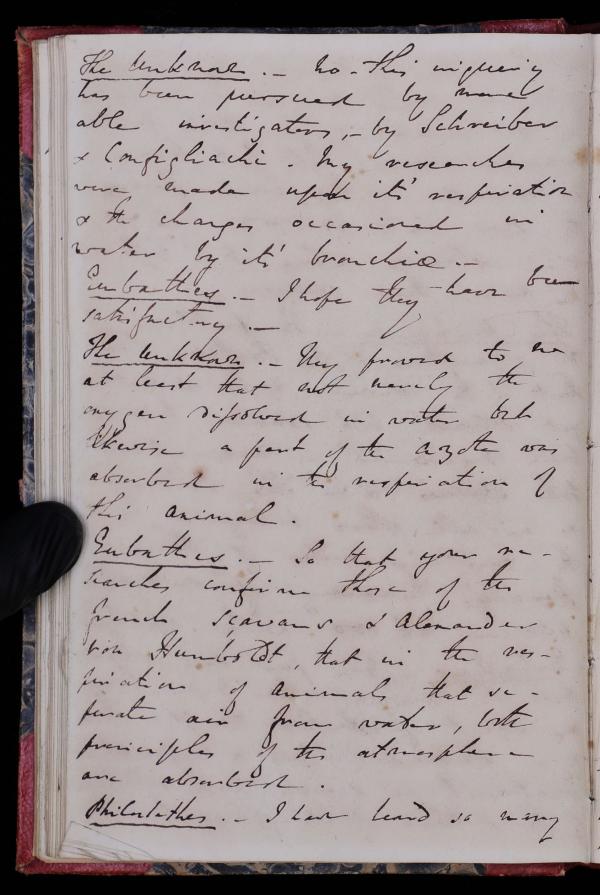 The Unknown. — No. this inquiry
has been pursued by more
able investigators, — by Schreiber
& Configliachi. My researches
were made upon it's respiration
& the changes occasioned in
water by it's bronchiæ. —
Eubathes. — I hope they have been
satisfactory. —
The Unknown. — They proved to me
at least that not merely the
oxygen dissolved in water but
likewise a part of the azote was
absorbed in the respiration of
this animal.
Eubathes. — So that your re-
searches confirm those of the
french sçavans & Alexander
von Humboldt, that in the res-
piration of animals that se-
perate air from water, both
principles of the atmosphere
are absorbed.
Philalethes. — I have heard so many